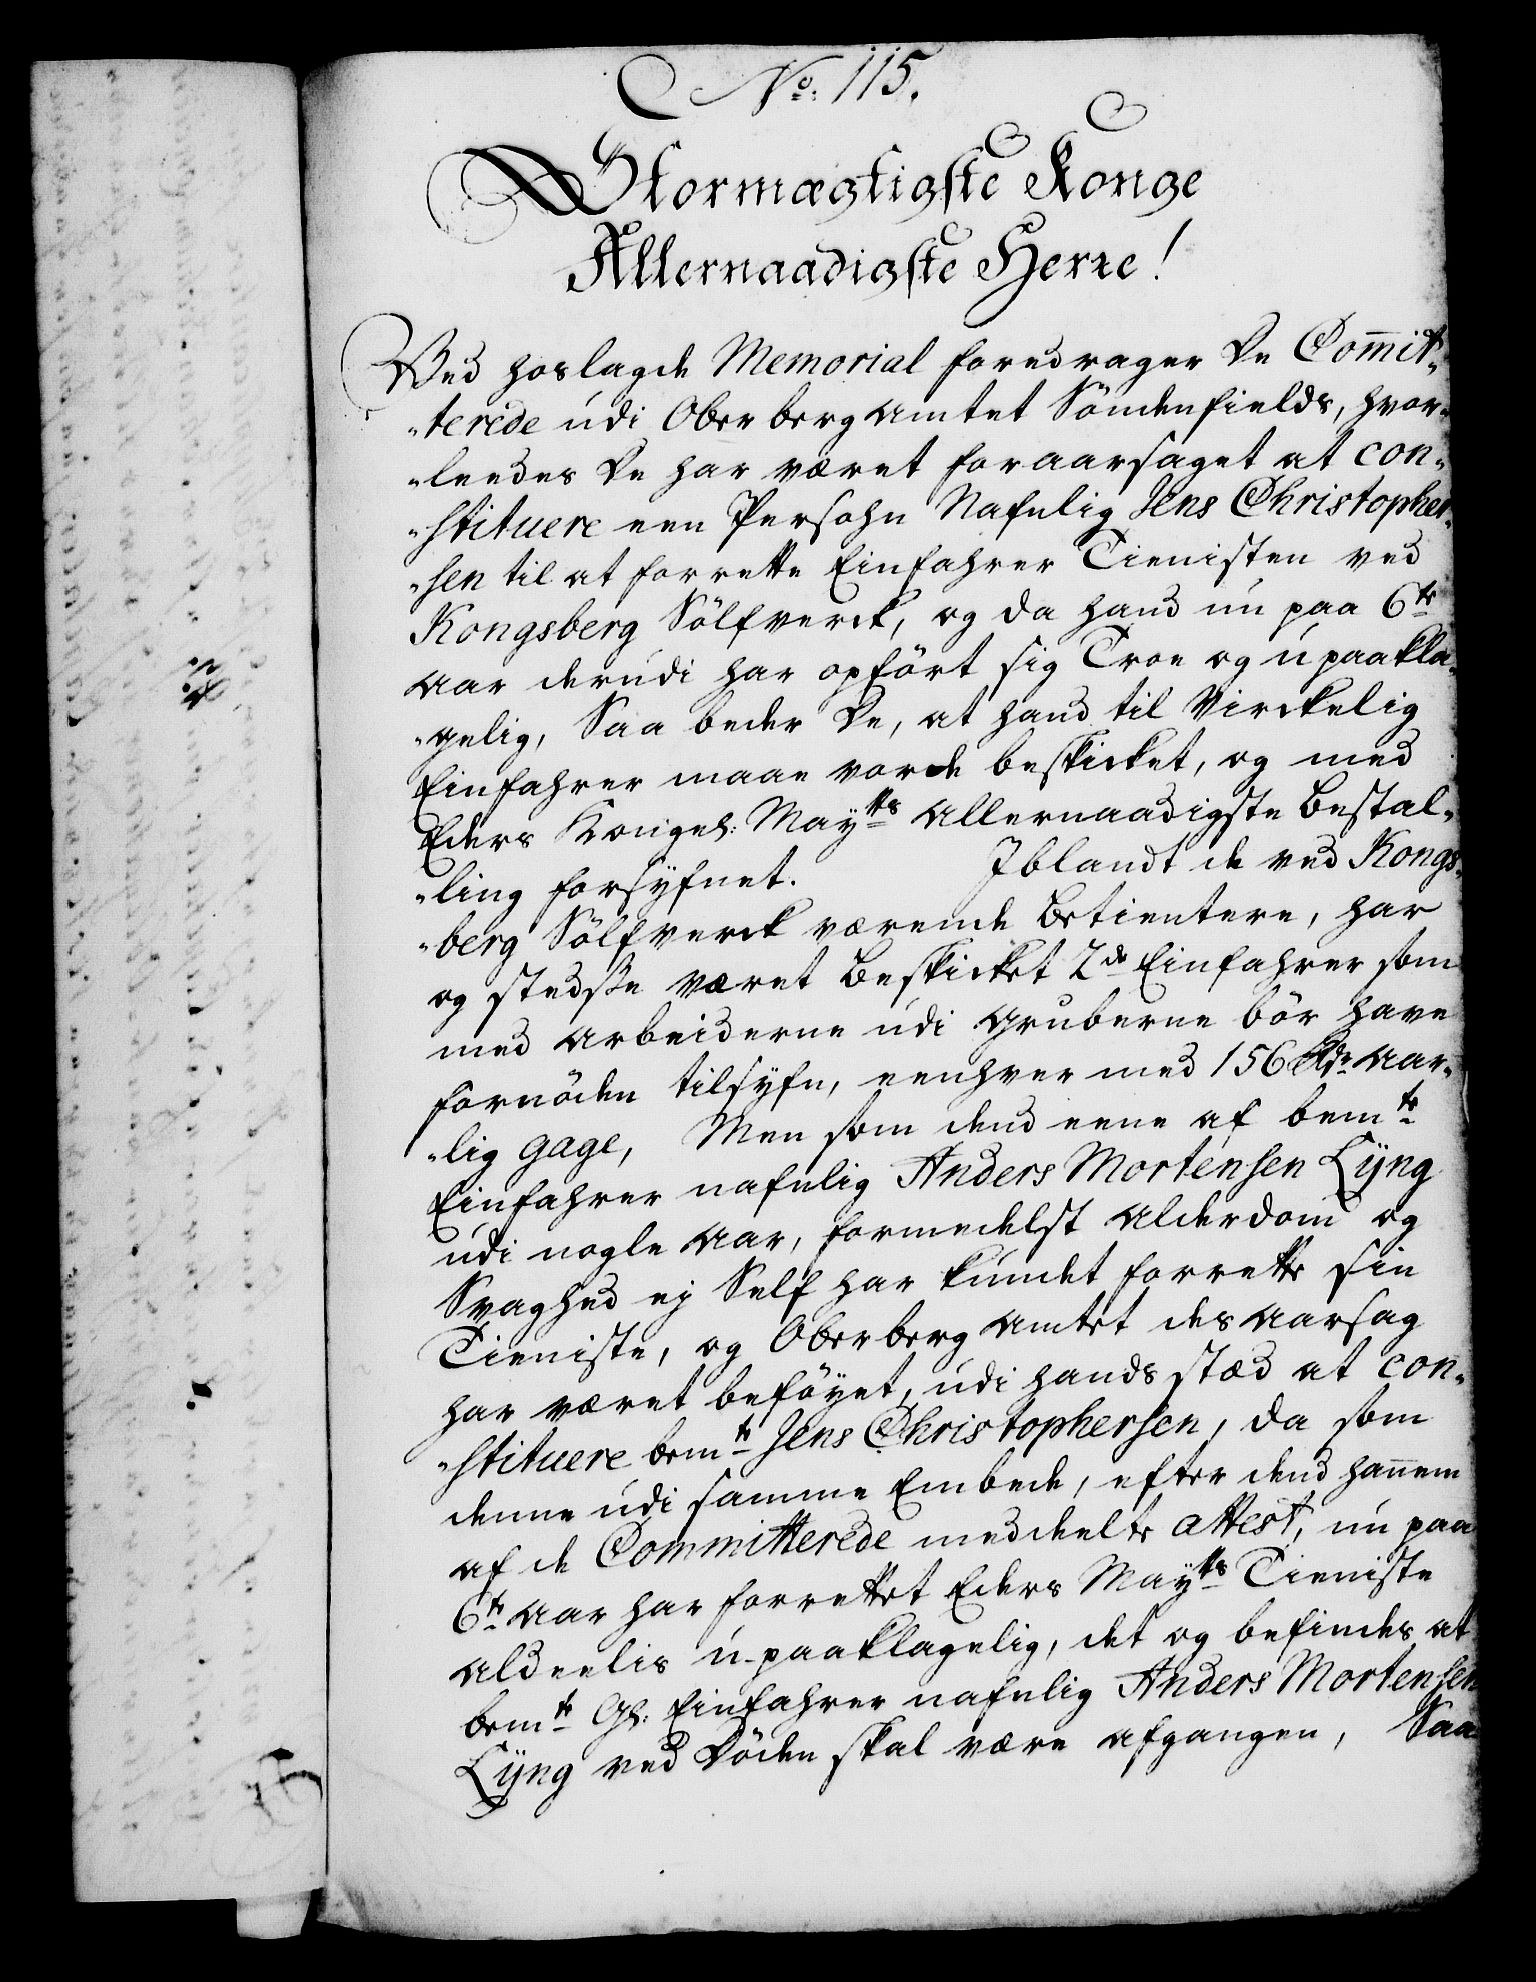 No: 115.
Stormægtigste Konge
Allernaadigste Herre!
Ved hoslagde Memorial foredrager De Com̅it-
-terede udi Ober berg Amtet Söndenfields, hvor-
-leedes De har været foraarsaget at con-
-stituere een Persohn Nafnlig Jens Christopher-
-sen til at forrette Einfahrer Tienisten ved
Kongsberg Sölfverck, og da hand nu paa 6te
Aar derudi har opfört sig Troe og upaakla-
-gelig, Saa beder De, at hand til Virckelig
Einfahrer maae vorde beskicket, og med
Eders Kongel: Maytts Allernaadigste Bestal-
-ling forsÿfnet. Iblandt de ved Kongs-
-berg Sölfverck værende Betientere, har
og stedsse været Beskicket 2de Einfahrer som
med Arbeiderne udi Gruberne bör have
fornöden tilsÿfn, eenhver med 156 Rdr Aar-
-lig gage, Men som dend eene af bemte
Einfahrer nafnlig Anders Mortensen Lÿng
udi nogle Aar, formedelst Alderdom og
Svaghed ej Self har kundet forrette sin
Tieniste, og Oberberg Amtet des Aarsag
har været beföyet, udi hands stæd at con-
-stituere bemte Jens Christophersen, da som
denne udi samme Embede, efter dend han̅em
af de Committerede meddeelte attest, nu paa
6te Aar har forrettet Eders Maytts Tieniste
Aldeelis u-paaklagelig, det og befindes at
bemte Gl: Einfahrer nafnlig Anders Mortensen
Lÿng ved Döden skal være afgangen, Saa